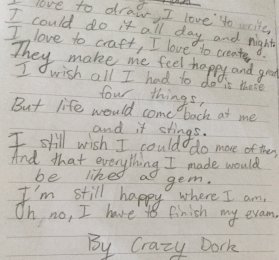 I love to draw, I love to write,
I could do it all day and night.
I love to craft, I love to create,
They make me feel happy and
I wish all I had to do is these
four things,
But life would come back at me
and it stings.
I still wish I could do more of them,
And that everything I made would
be liked as gem.
I'm still happy where I am.
Oh no, I have to finish my exam.
By Crazy Dork